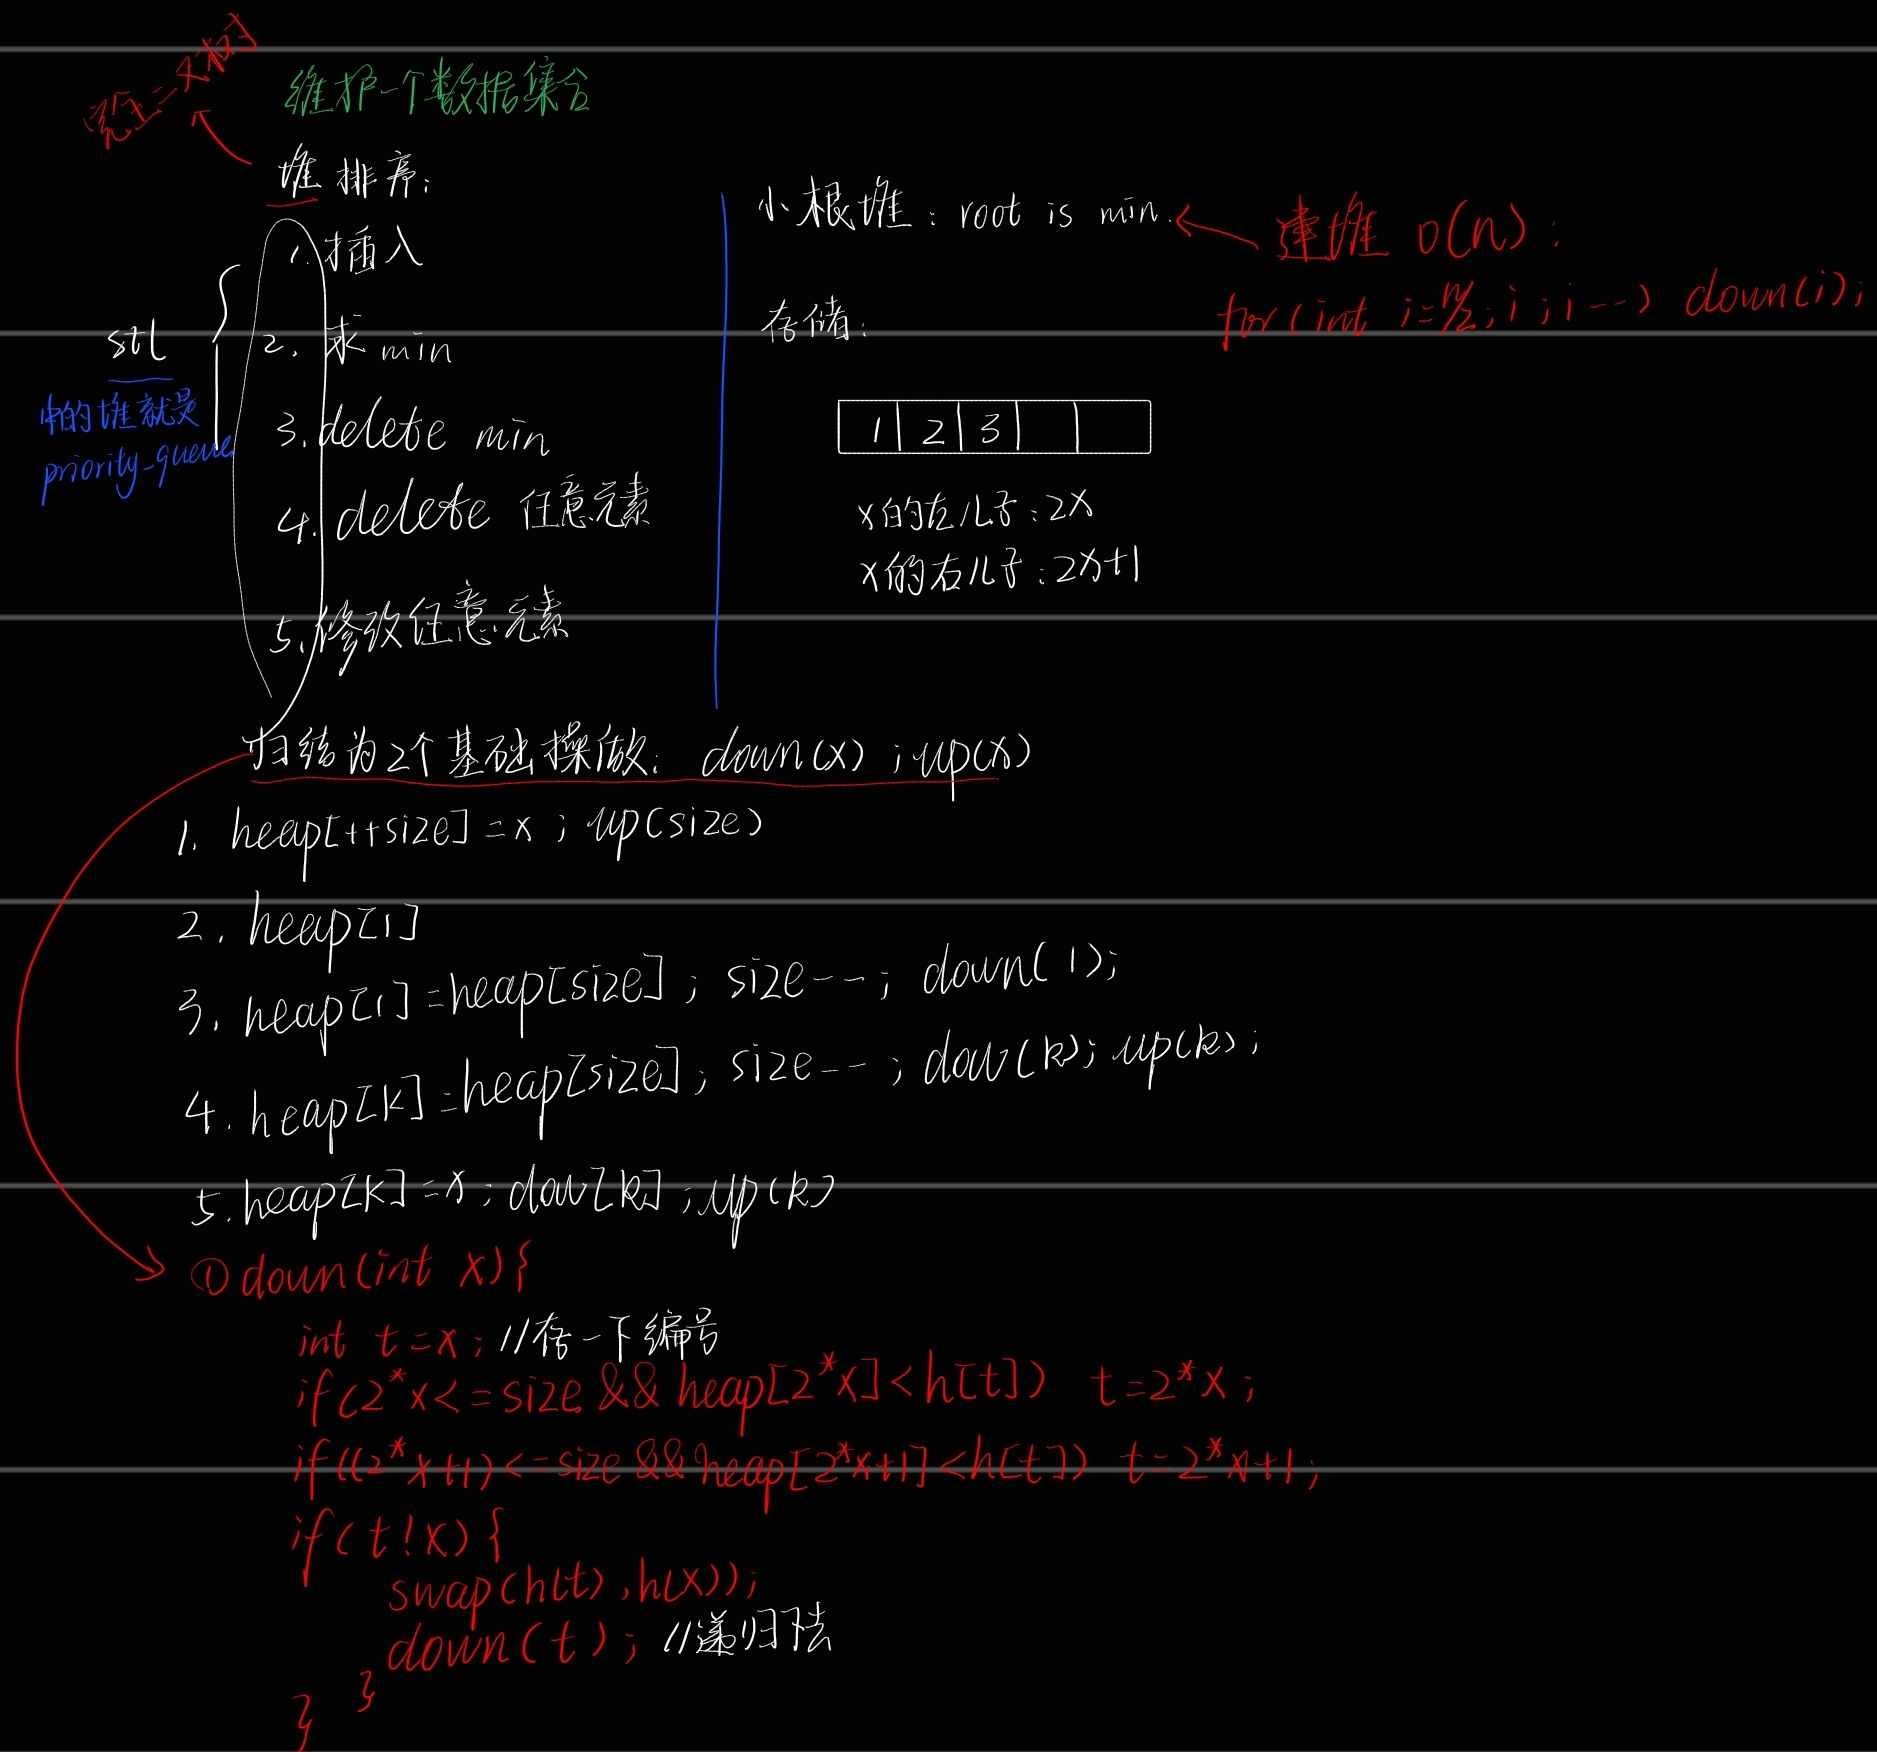 完全二叉树
维护一个数据集合
堆排序:
1. 插入
2. 求 min
3. delete min
4. delete 任意元素
5. 修改任意元素
stl
中的堆就是
priority_queue
小根堆: root is min.
建堆 O(n):
for(int i=n/2;i;i--) down(i);
存储:
1 2 3
x的左儿子:2x
x的右儿子:2x+1
归结为2个基础操做: down(x);up(x)
1. heap[++size]=x; up(size)
2. heap[1]
3. heap[1]=heap[size]; size--; down(1);
4. heap[k]=heap[size]; size--; dow(k); up(k);
5. heap[k]=x; dow[k]; up(k)
① down(int x){
int t=x; //存一下编号
if(2*x<=size && heap[2*x]<h[t]) t=2*x;
if((2*x+1)<=size && heap[2*x+1]<h[t]) t=2*x+1;
if(t!x){
swap(h(t),h(x));
down(t); //递归下去
}
}